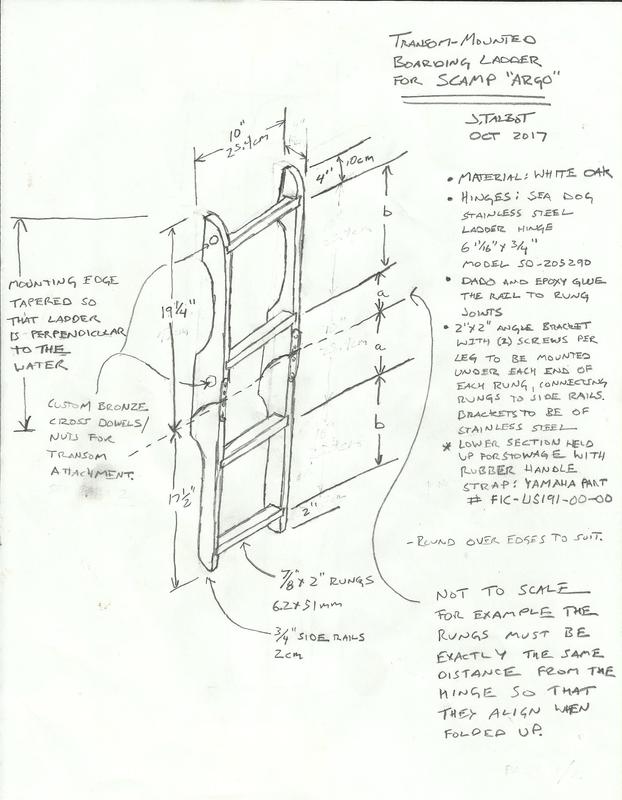 TRANSOM-MOUNTED
BOARDING LADDER
FOR SCAMP "ARGO"
J. TALBOT
OCT 2017
10"
25.4cm
4"
10cm
b
a
a
b
2"
19 1/4"
17 1/2"
MOUNTING EDGE
TAPERED SO
THAT LADDER
IS PERPENDICULAR
TO THE
WATER
CUSTOM BRONZE
CROSS DOWELS/
NUTS FOR
TRANSOM
ATTACHMENT.
• MATERIAL: WHITE OAK
• HINGES: SEA DOG
STAINLESS STEEL
LADDER HINGE
6 1/16" x 3/4"
MODEL SD-205290
• DADO AND EPOXY GLUE
THE RAIL TO RUNG
JOINTS
• 2"x2" ANGLE BRACKET
WITH (2) SCREWS PER
LEG TO BE MOUNTED
UNDER EACH END OF
EACH RUNG, CONNECTING
RUNGS TO SIDE RAILS.
BRACKETS TO BE OF
STAINLESS STEEL
* LOWER SECTION HELD
UP FOR STOWAGE WITH
RUBBER HANDLE
STRAP: YAMAHA PART
# F1C-U5191-00-00
- ROUND OVER EDGES TO SUIT.
7/8" x 2" RUNGS
62 x 51mm
3/4" SIDE RAILS
2cm
NOT TO SCALE
FOR EXAMPLE THE
RUNGS MUST BE
EXACTLY THE SAME
DISTANCE FROM THE
HINGE SO THAT
THEY ALIGN WHEN
FOLDED UP.